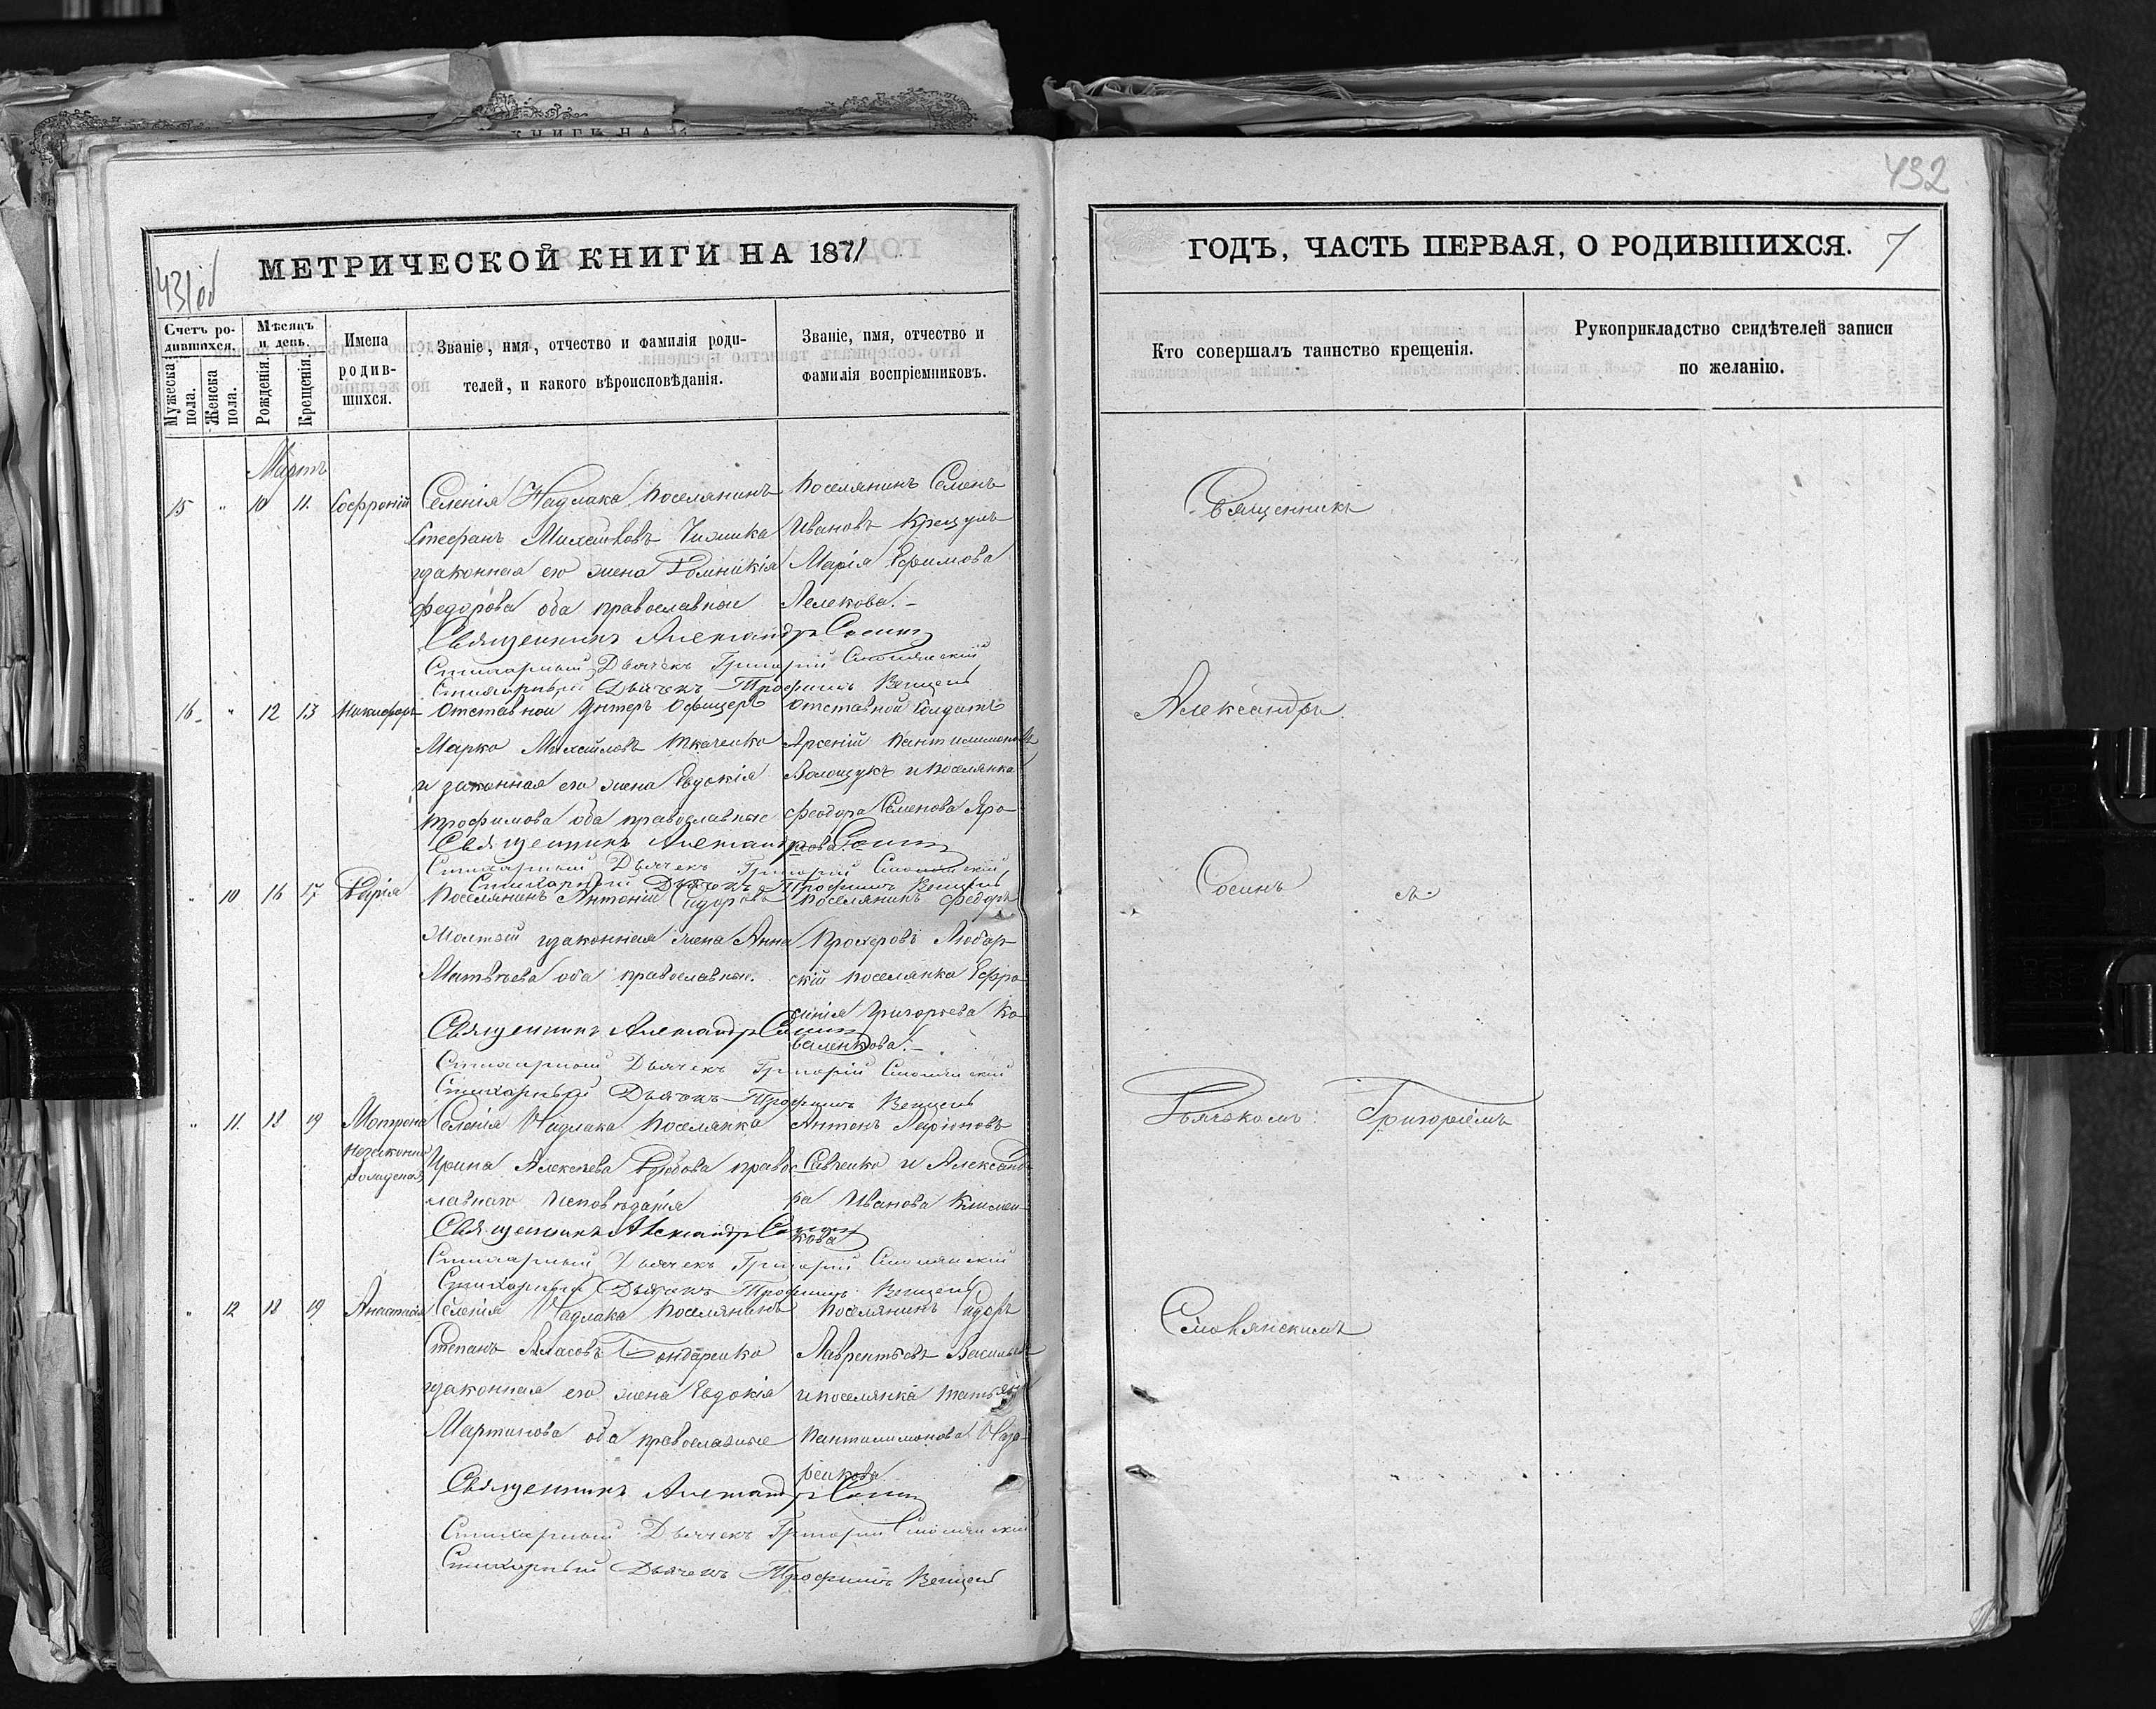 КНИГИ НА
432
431 об
МЕТРИЧЕСКОЙ КНИГИ НА 1871
Счетъ родившихся.
Мужеска пола.
Женска пола.
Мѣсяцъ и день.
Рожденія.
Крещенія.
Имена родившихся.
Званіе, имя, отчество и фамилія родителей, и какого вѣроисповѣданія.
Званіе, имя, отчество и фамилія воспріемниковъ.
Мартъ
15 " 10 11. Софроній
Селенія Надлака поселянинъ
Стефанъ Михайловъ
законная его жена Домникія
Федорова оба православные
Поселянинъ Семенъ
Ивановъ
Марія Ефимова
Лелекова.
Священникъ Александръ Сосинъ
Стихарный Дьячекъ Григорій Смолянскій
Стихарный Дьячекъ Трофимъ
16 " 12 13 Никифоръ
Отставной Унтеръ Офицеръ
Марко Михайловъ Ткаченко
и законная его жена Евдокія
Трофимова оба православные
Отставной Солдатъ
Арсеній Пантилимоновъ
Волощукъ и поселянка
Феодора Семенова
Священникъ Александръ Сосинъ
Стихарный Дьячекъ Григорій Смолянскій
Стихарный Дьячекъ Трофимъ
" 10 16 17 Дарія
Поселянинъ Антоній Сидоровъ
законная жена Анна
Матвѣева оба православные.
Поселянинъ Федоръ
Прохоровъ Любар-
скій поселянка Ефро-
синія Григорьева Ко-
валенкова.
Священникъ Александръ Сосинъ
Стихарный Дьячекъ Григорій Смолянскій
Стихарный Дьячекъ Трофимъ
" 11. 18 19 Мотрона
незаконно
рожденая
Селенія Надлака поселянка
Ирина Алексѣева правос-
лавнаго исповѣданія
Антонъ Ларіоновъ
Савченко и Александ-
ра Иванова Климен-
кова
Священникъ Александръ Сосинъ
Стихарный Дьячекъ Григорій Смолянскій
Стихарный Дьячекъ Трофимъ
" 12 18 19 Анастасія
Селенія Надлака поселянинъ
Степанъ Власовъ Бондаренко
законная его жена Евдокія
Мартинова оба православные
Поселянинъ Сидоръ
Лаврентьевъ
и поселянка Татьяна
Пантилимонова Наза-
ренкова
Священникъ Александръ Сосинъ
Стихарный Дьячекъ Григорій Смолянскій
Стихарный Дьячекъ Трофимъ
ГОДЪ, ЧАСТЬ ПЕРВАЯ, О РОДИВШИХСЯ. 7
Кто совершалъ таинство крещенія.
Рукоприкладство свидѣтелей записи по желанію.
Священникъ
Александръ
Сосинъ съ
Дьячкомъ Григоріемъ
Смолянскимъ